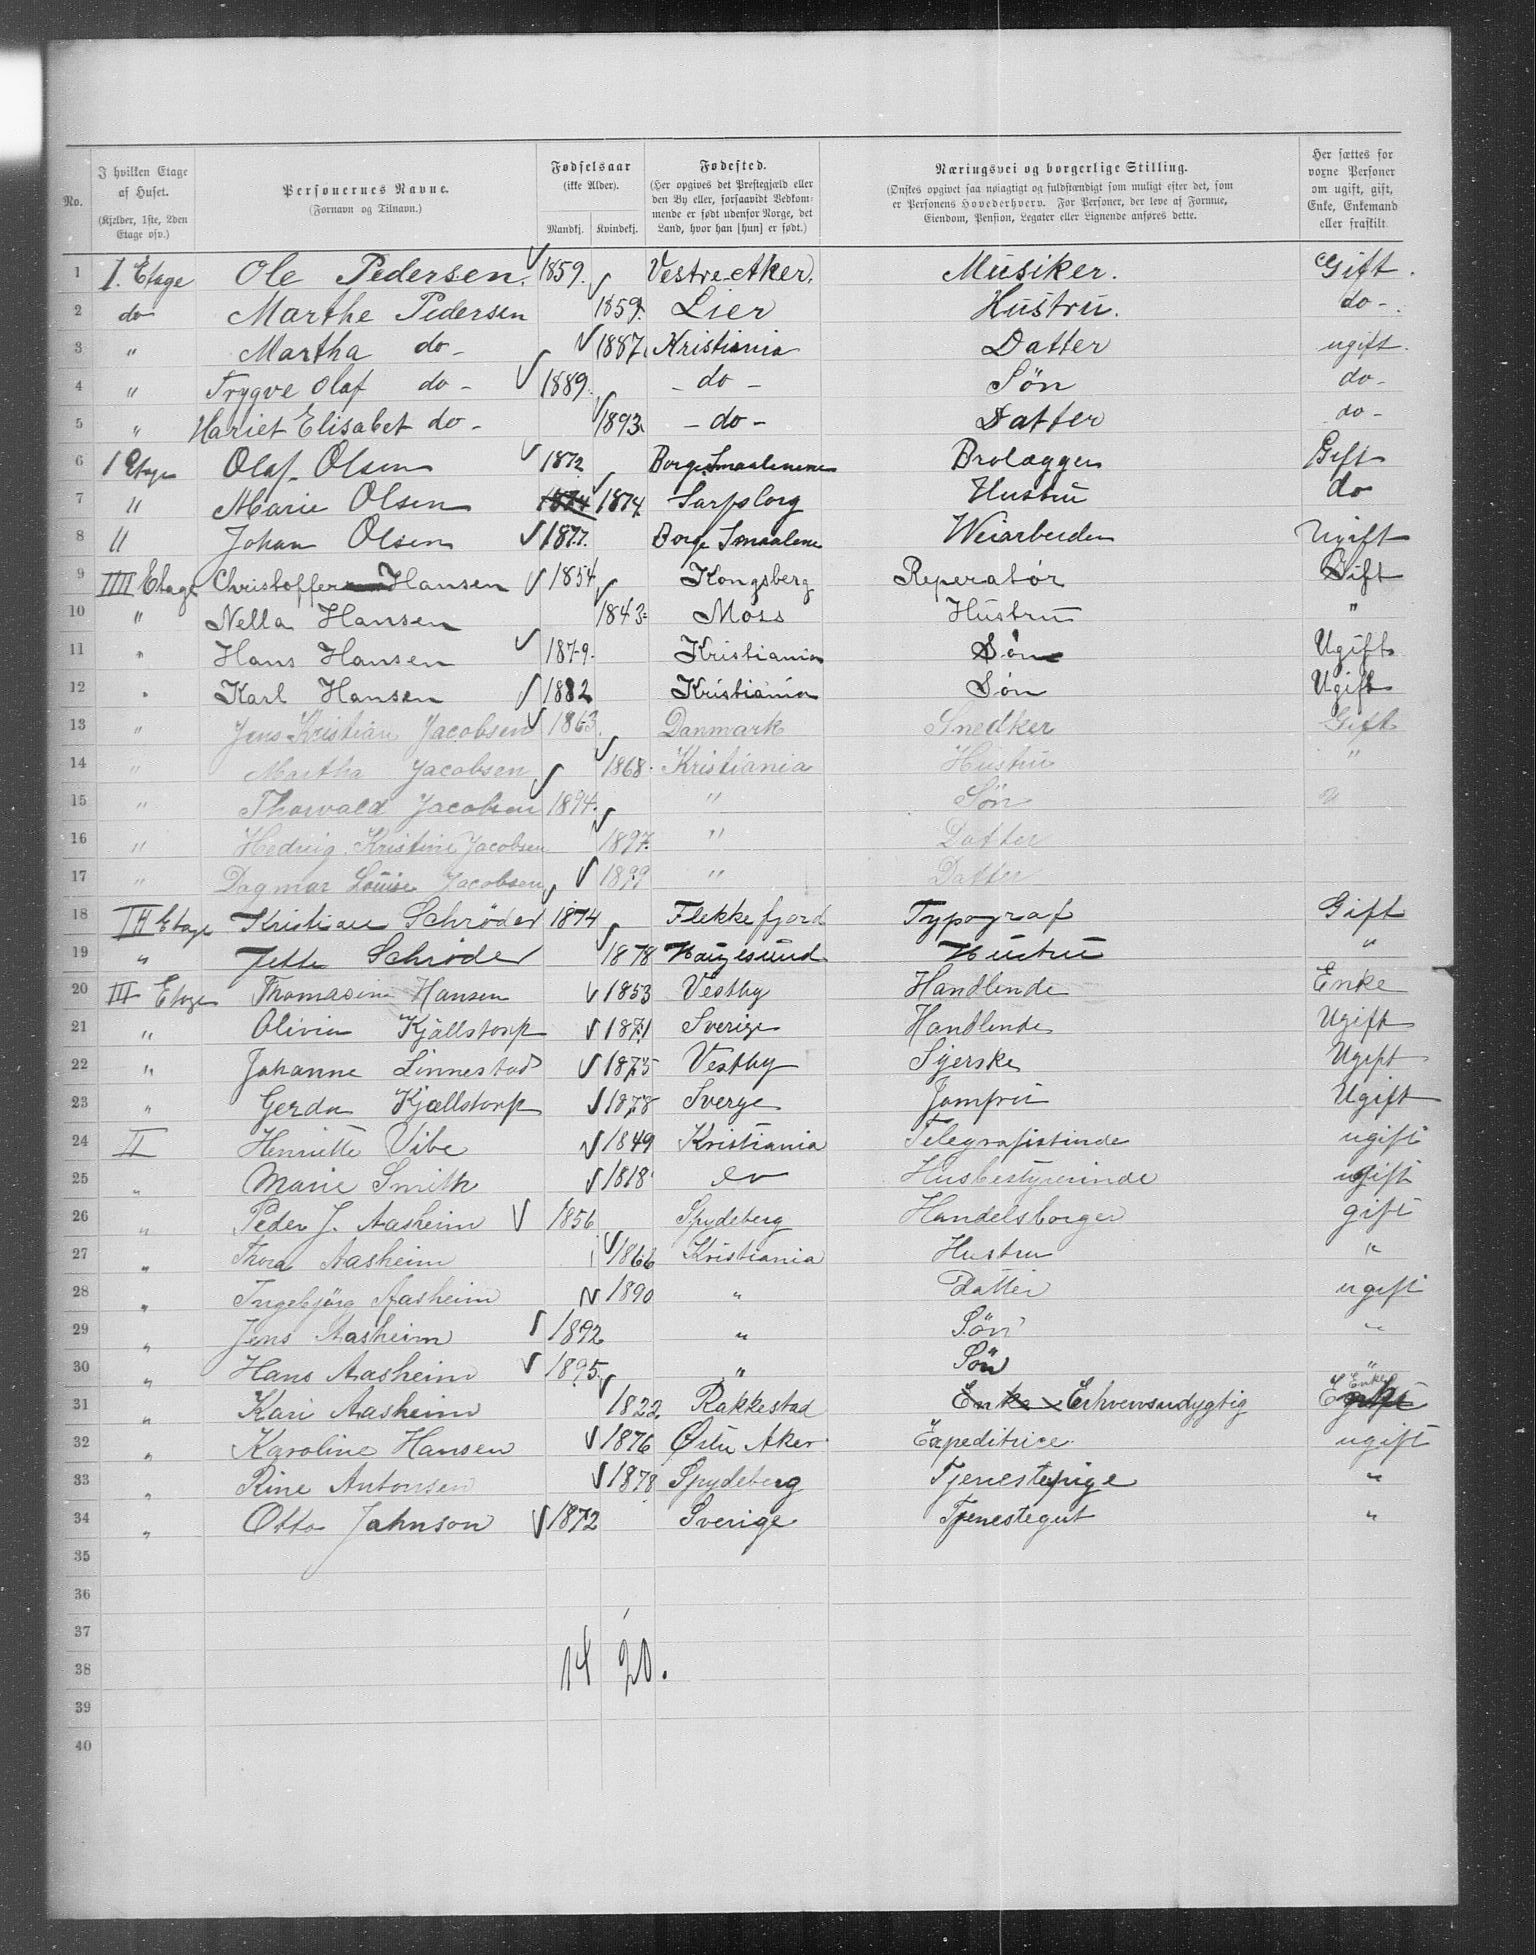 No.
I hvilken Etage af Huset. (Kjelder, 1ste, 2den Etage osv.)
Personernes Navne. (Fornavn og Tilnavn.)
Fødselsaar (ikke Alder). Mandkj. Kvindekj.
Fødested. (Her opgives det Prestegjæld eller den By eller, forsaavidt Vedkommende er født udenfor Norge, det Land, hvor han [hun] er født.)
Næringsvei og borgerlige Stilling. (Ønskes opgivet saa nøiagtigt og fuldstændigt som muligt efter det, som er Personens Hovederhverv. For Personer, der leve af Formue, Eiendom, Pension, Legater eller Lignende anføres dette.)
Her sættes for voxne Personer om ugift, gift, Enke, Enkemand eller fraskilt.
1 I. Etage Ole Pedersen. 1859. Vestre Aker. Musiker. Gift.
2 do Marthe Pedersen 1859. Lier Hustru. do-
3 " Martha do- 1887. Kristiania Datter ugift.
4 " Trygve Olaf do- 1889. -do- Søn do-
5 " Hariet Elisabet do- 1893. -do- Datter do-
6 1 Etage Olaf Olsen 1872 Borge Smaalenene Brolægger Gift
7 " Marie Olsen 1874 1874 Sarpsborg Hustru do
8 " Johan Olsen 1877. Borge Smaalene Weiarbeider Ugift
9 IIII Etage Christoffer Hansen 1854 Kongsberg Reperatør Gift
10 " Nella Hansen 1843 Moss Hustru "
11 " Hans Hansen 1879. Kristiania Søn Ugift
12 " Karl Hansen 1882 Kristiania Søn Ugift
13 " Jens Kristian Jacobsen 1863 Danmark Snedker Gift
14 " Martha Jacobsen 1868. Kristiania Hustru "
15 " Thorvald Jacobsen 1894. " Søn
16 " Hedvig Kristine Jacobsen 1897. " Datter
17 " Dagmar Louise Jacobsen 1899 " Datter
18 III Etage Kristian Schrøder 1874 Flekkefjord Typograf Gift
19 " Jette Schrøder 1878 Haugesund Hustru "
20 III Etage Thomasine Hansen 1853 Vestby Handlende Enke
21 " Olivia Kjällstorp 1871 Sverige Handlende Ugift
22 " Johanne Linnestad 1875 Vestby Syerske Ugift
23 " Gerda Kjællstorp 1878 Sverge Jomfru Ugift
24 II Henriette Vibe 1849 Kristiania Telegrafistinde ugift
25 " Marie Smith 1818 do Husbestyrerinde ugift
26 " Peder J. Aasheim 1856 Spydeberg Handelsborger gift
27 " Thora Aasheim 1866 Kristiania Hustru "
28 " Ingebjørg Aasheim 1890 " Datter ugift
29 " Jens Aasheim 1892 " Søn "
30 " Hans Aasheim 1895. " Søn "
31 " Kari Aasheim 1822 Rakkestad Enke Erhvervsudygtig Enke
32 " Karoline Hansen 1876 Østre Aker Expeditrice. ugift
33 " Rine Antonsen 1878 Spydeberg Tjenestepige "
34 " Otto Johnson 1872 Sverige Tjenestegut "
35
36
37
38 14 20.
39
40